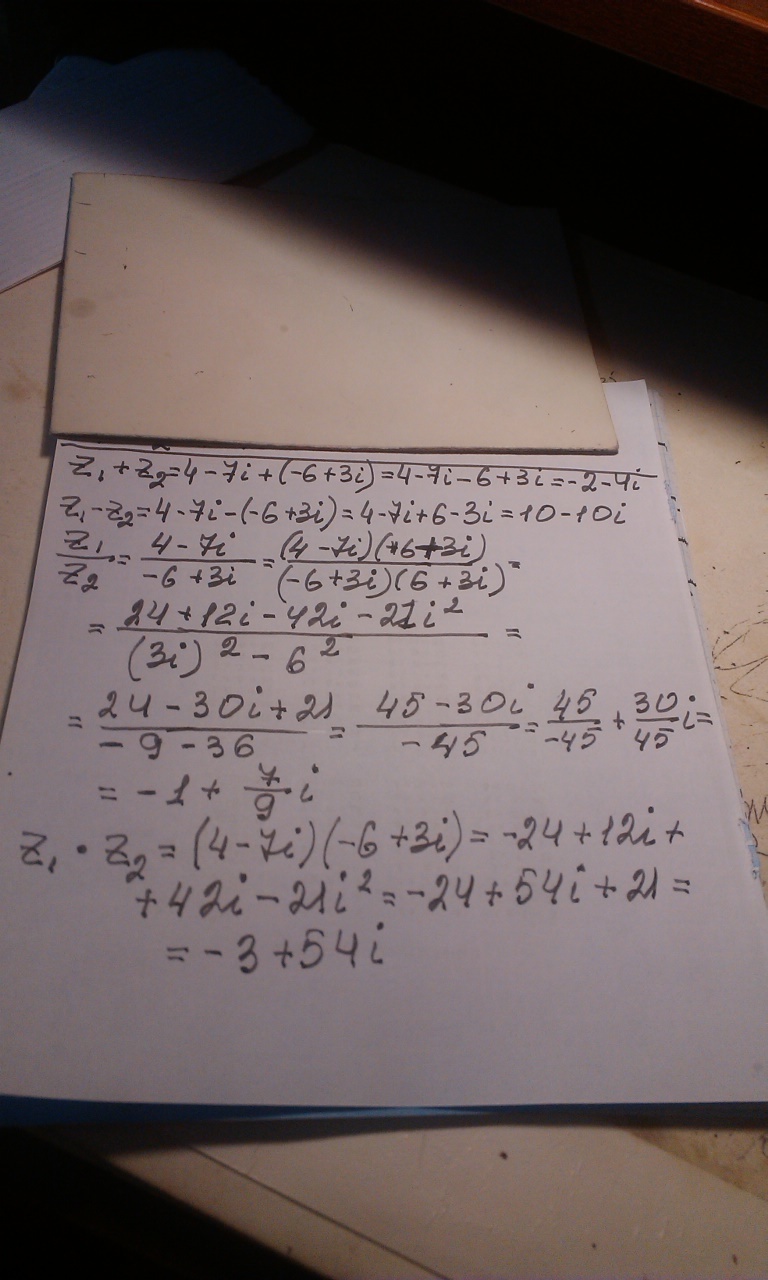 z₁ + z₂ = 4 - 7i + (-6 + 3i) = 4 - 7i - 6 + 3i = -2 - 4i
z₁ - z₂ = 4 - 7i - (-6 + 3i) = 4 - 7i + 6 - 3i = 10 - 10i
z₁/z₂ = (4 - 7i)/(-6 + 3i) = ((4 - 7i)(+6 + 3i))/((-6 + 3i)(6 + 3i)) =
= (24 + 12i - 42i - 21i²)/((3i)² - 6²) =
= (24 - 30i + 21)/(-9 - 36) = (45 - 30i)/(-45) = 45/(-45) + (30/45)i =
= -1 + (7/9)i
z₁ · z₂ = (4 - 7i)(-6 + 3i) = -24 + 12i +
+ 42i - 21i² = -24 + 54i + 21 =
= -3 + 54i